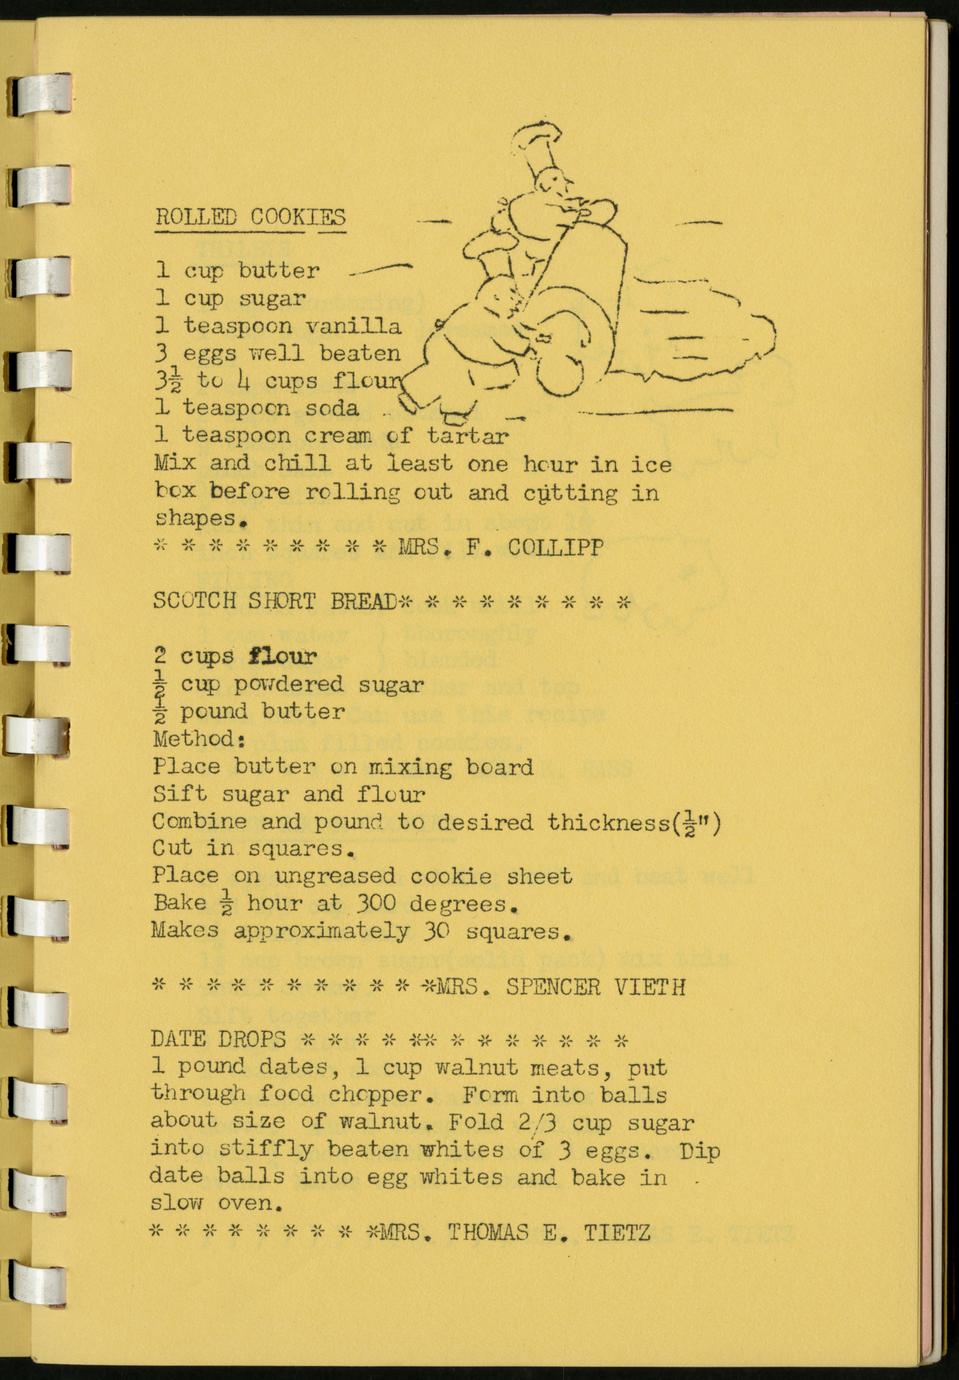 ROLLED COOKIES
1 cup butter
1 cup sugar
1 teaspoon vanilla
3 eggs well beaten
3½ to 4 cups flour
1 teaspoon soda
1 teaspoon cream of tartar
Mix and chill at least one hour in ice
box before rolling out and cutting in
shapes.
* * * * * * * * * MRS. F. COLLIPP
SCOTCH SHORT BREAD* * * * * * * * *
2 cups flour
½ cup powdered sugar
½ pound butter
Method:
Place butter on mixing board
Sift sugar and flour
Combine and pound to desired thickness(½")
Cut in squares.
Place on ungreased cookie sheet
Bake ½ hour at 300 degrees.
Makes approximately 30 squares.
* * * * * * * * * * *MRS. SPENCER VIETH
DATE DROPS * * * * ** * * * * * * *
1 pound dates, 1 cup walnut meats, put
through food chopper. Form into balls
about size of walnut. Fold 2/3 cup sugar
into stiffly beaten whites of 3 eggs. Dip
date balls into egg whites and bake in
slow oven.
* * * * * * * * *MRS. THOMAS E. TIETZ